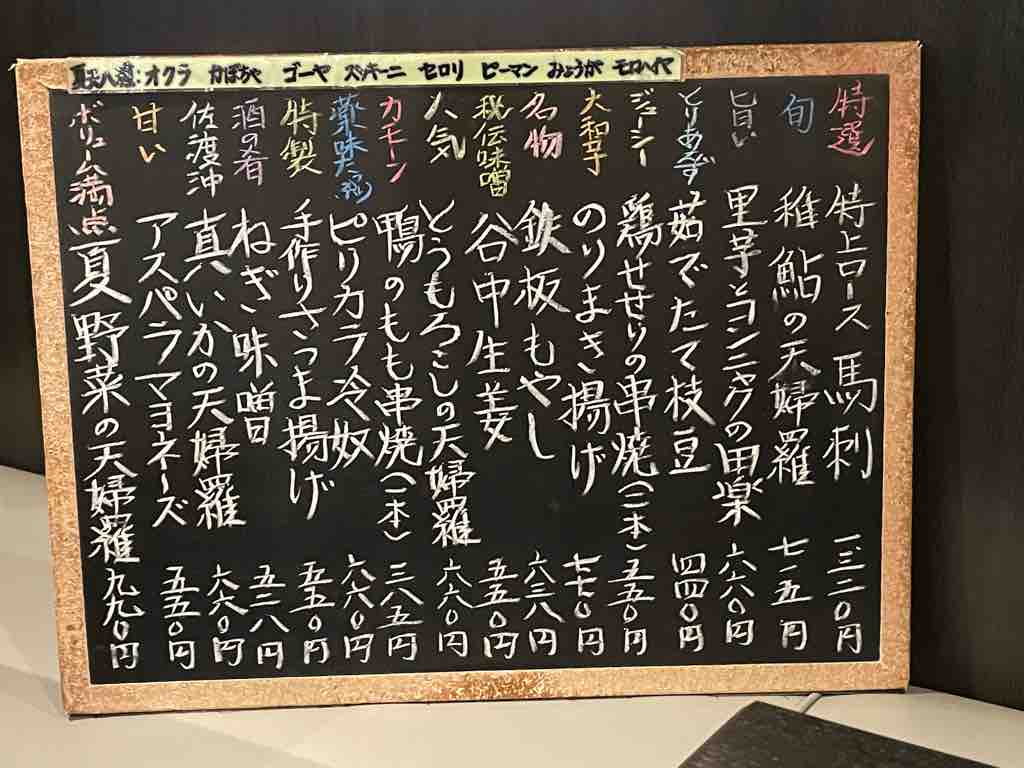 夏天八種:オクラ かぼちゃ ゴーヤ ズッキーニ セロリ ピーマン みょうが モロヘイヤ
特選 特上ロース馬刺 一、三二〇円
旬 稚鮎の天婦羅 七一五円
旨い 里芋とコンニャクの田楽 六六〇円
とりあえず 茹でたて枝豆 四四〇円
ジューシー 鶏せせりの串焼(二本) 五五〇円
大和芋 のりまき揚げ 七七〇円
名物 鉄板もやし 六三八円
秘伝味噌 谷中生姜 五五〇円
人気 とうもろこしの天婦羅 六六〇円
カモーン 鴨のもも串焼(一本) 三八五円
薬味たっぷり ピリカラ冷奴 六六〇円
特製 手作りさつま揚げ 五五〇円
酒の肴 ねぎ味噌 五二八円
佐渡沖 真いかの天婦羅 六六〇円
甘い アスパラマヨネーズ 五五〇円
ボリューム満点 夏野菜の天婦羅 九九〇円